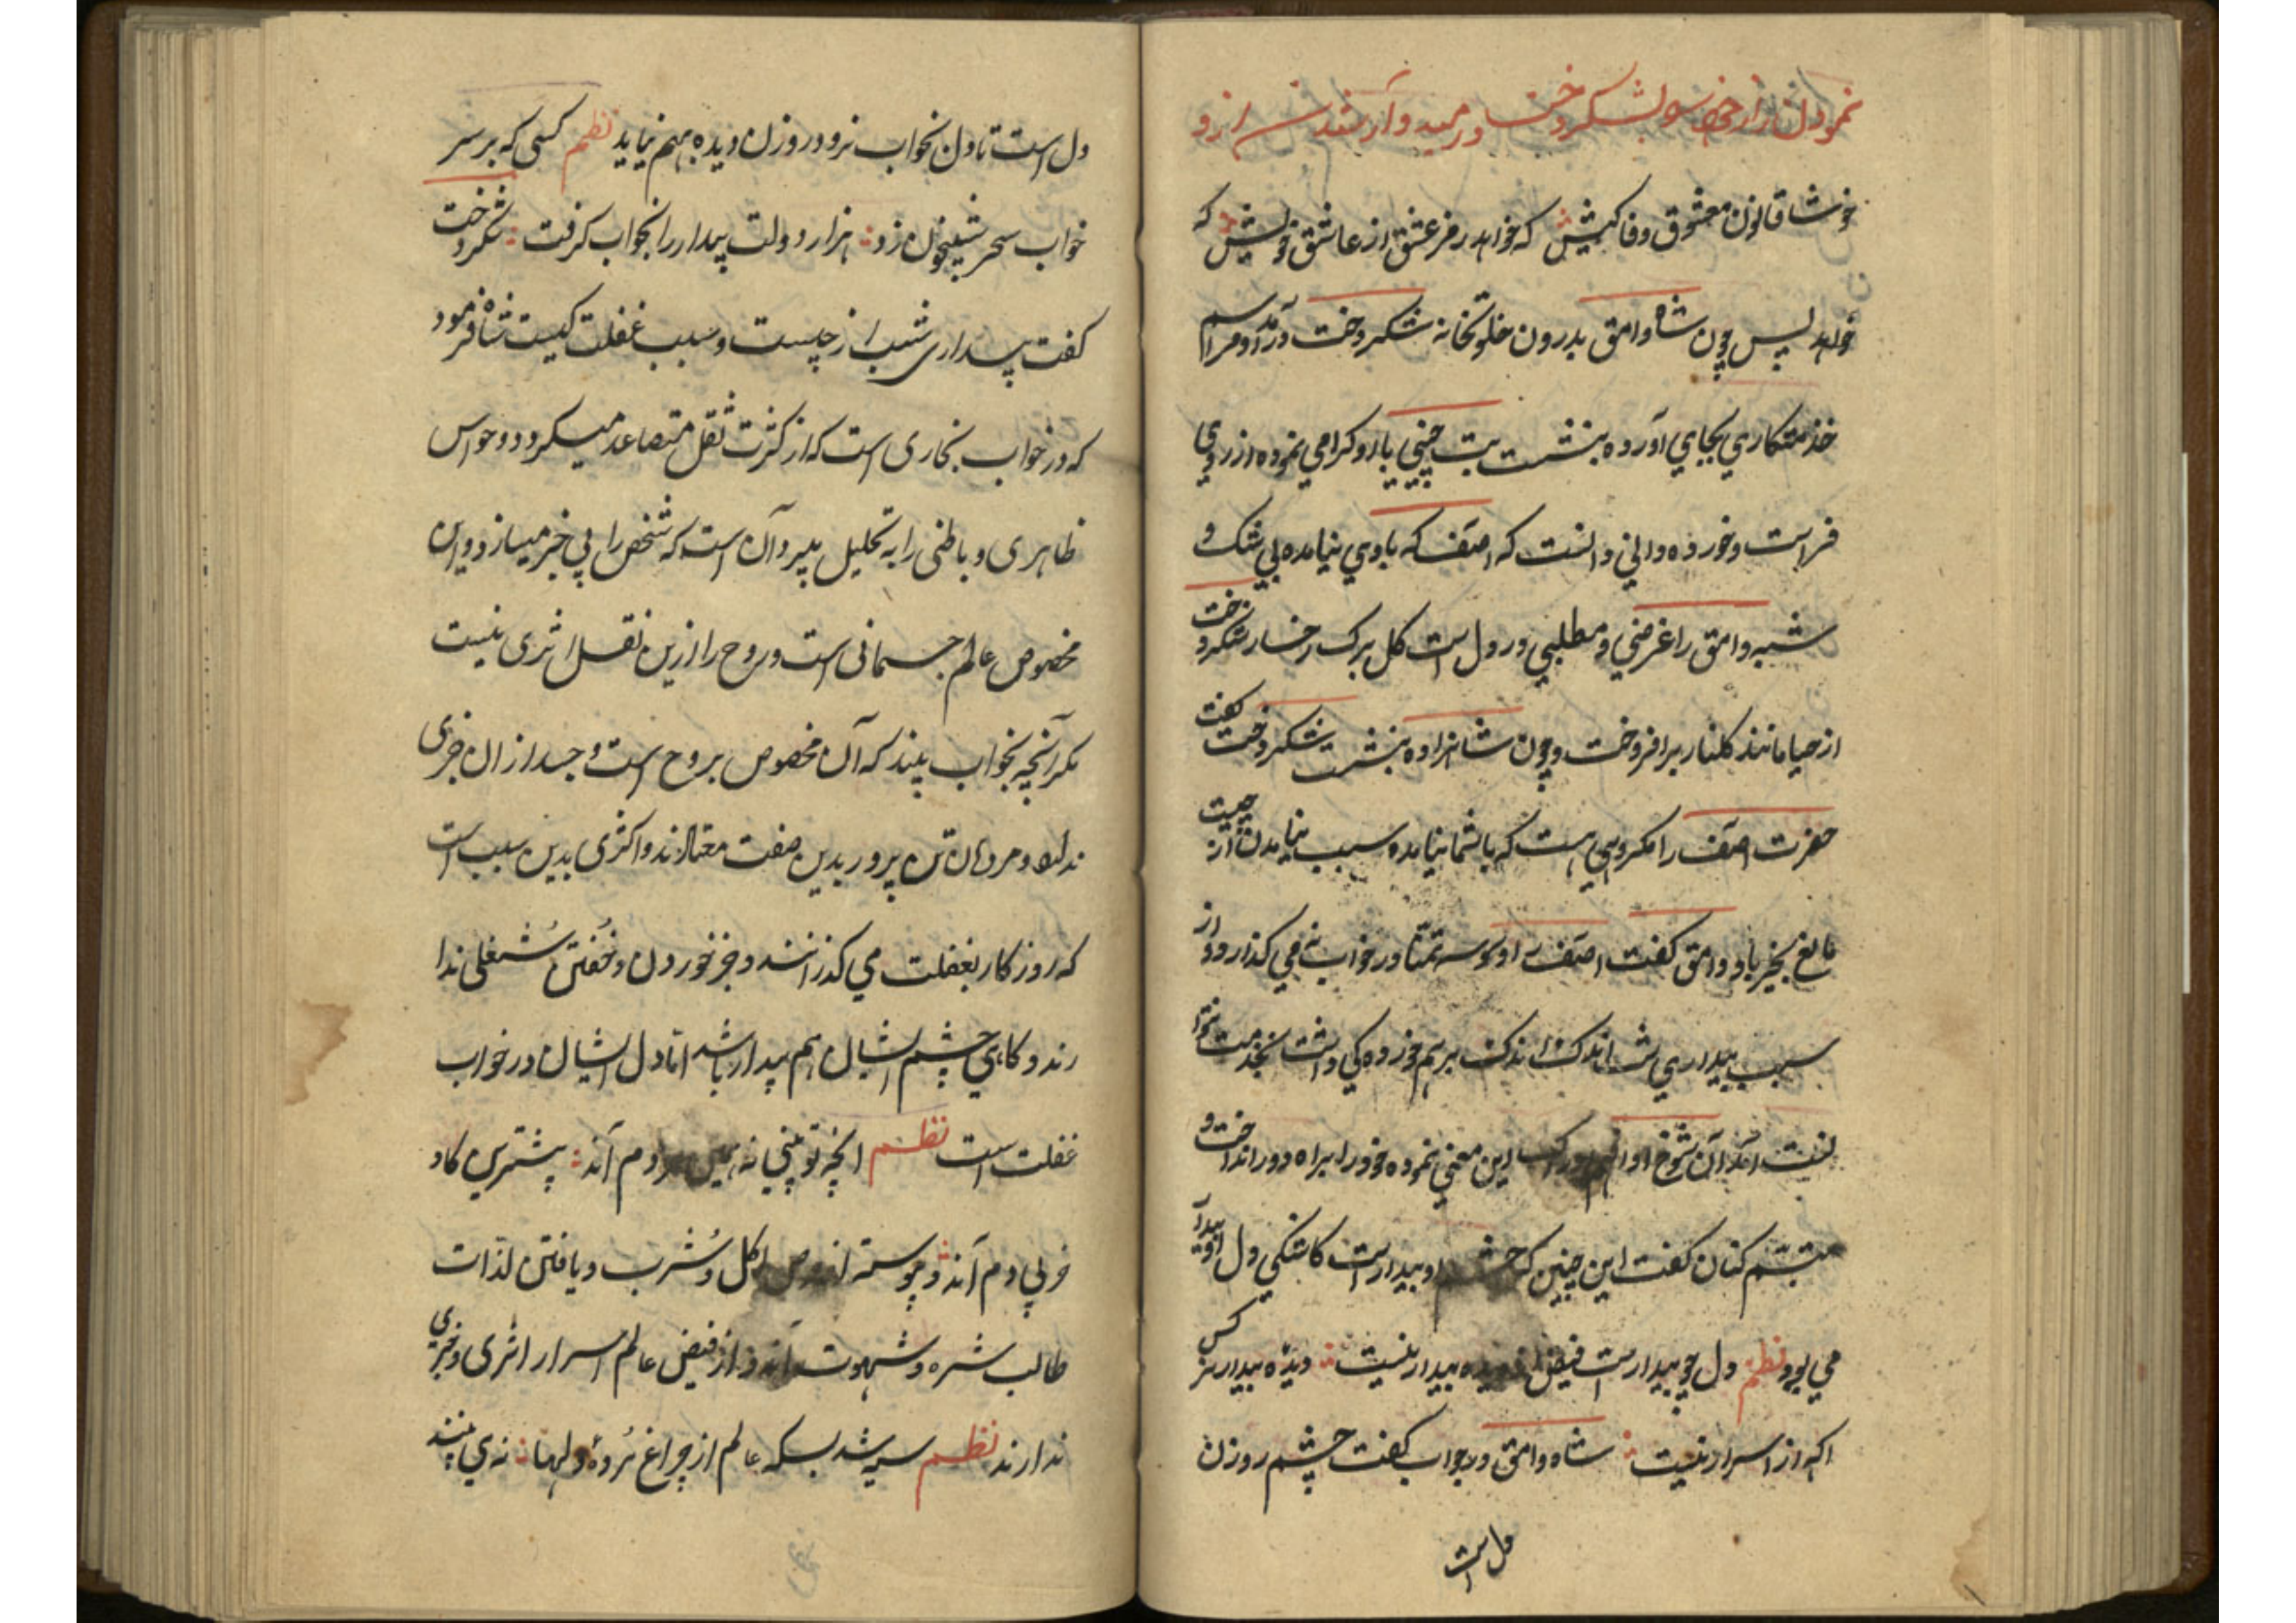 نمودن راز خود بشکر دخت و رمیده و آزرده شدن از و
خوشا قانون معشوق وفا کیش که خواهد رمز عشق از عاشق خویش که
خواهد پس چون شاه وامق بدرون خلوتخانه شکر دخت درآمد و مراسم
خذمتکاري بجاي آورده بنشست بت چیني یاد و کرامي نموده از روي
فراست و خورده داني دانست که اصف که باوي نیامده بي شک و
شبه وامق را غرضي و مطلبي در دل است کل برک رخسار شکر دخت
از حیا مانند کلنار برافروخت و چون شاهزاده بنشست شکر دخت کفت
حضرت اصف را مکروهي هست که باشما نیامده سبب نیامدن از چیست
مانع بخیر باد وامق کفت اصف را وسوسه تمنا در خواب نمي کذارد و از
سبب بیداري شب اندک اندک برهم خورده کي داشت بخدمت
آن شوخ ادا این معني نموده خود را براه دور انداخت و
تبسم کنان کفت این چنین که چشم او بیدار است کاشکي دل او بیدار
مي بود نظم دل چو بیدار است فیض از دیده بیدار نیست دیده بیدار هر کس
اکه از اسرار نیست شاه وامق در جواب کفت چشم روزن
دل است
دل است تا دل بخواب نرود روزن دیده بهم نیاید نظم کسی که بر سر
خواب سحر شبیخون زد هزار دولت بیدار را بخواب کرفت شکر دخت
کفت بیداری شب از چیست و سبب غفلت کیست شاه فرمود
که در خواب بخاری است که از کثرت ثقل متصاعد میکردد و حواس
ظاهری و باطنی را به تحلیل میبرد و آن است که شخص را بی خبر میسازد و این
مخصوص عالم جسمانی است و روح را ازین نقل اثری نیست
مکر آنچه بخواب بیند که آن مخصوص بروح است و جسد از ان خبری
ندارد و مردمان تن پرور بدین صفت معتادند و اکثری بدین سبب است
که روزکار بغفلت می کذرانند و جز خوردن و خفتن شغلی ندا
رند و کاهي چشم ایشان هم بیدار باشد اما دل ایشان در خواب
غفلت است نظم انچه تو بیني نه همین مردم اند بیشترین کاو
خر بي دم اند و پیوسته از حرص اکل و شرب و یافتن لذات
طالب شره و شهوت اند و از فیض عالم اسرار اثری و خبری
ندارند نظم سیه شد بسکه عالم از چراغ مرده دلها نه ي بیند